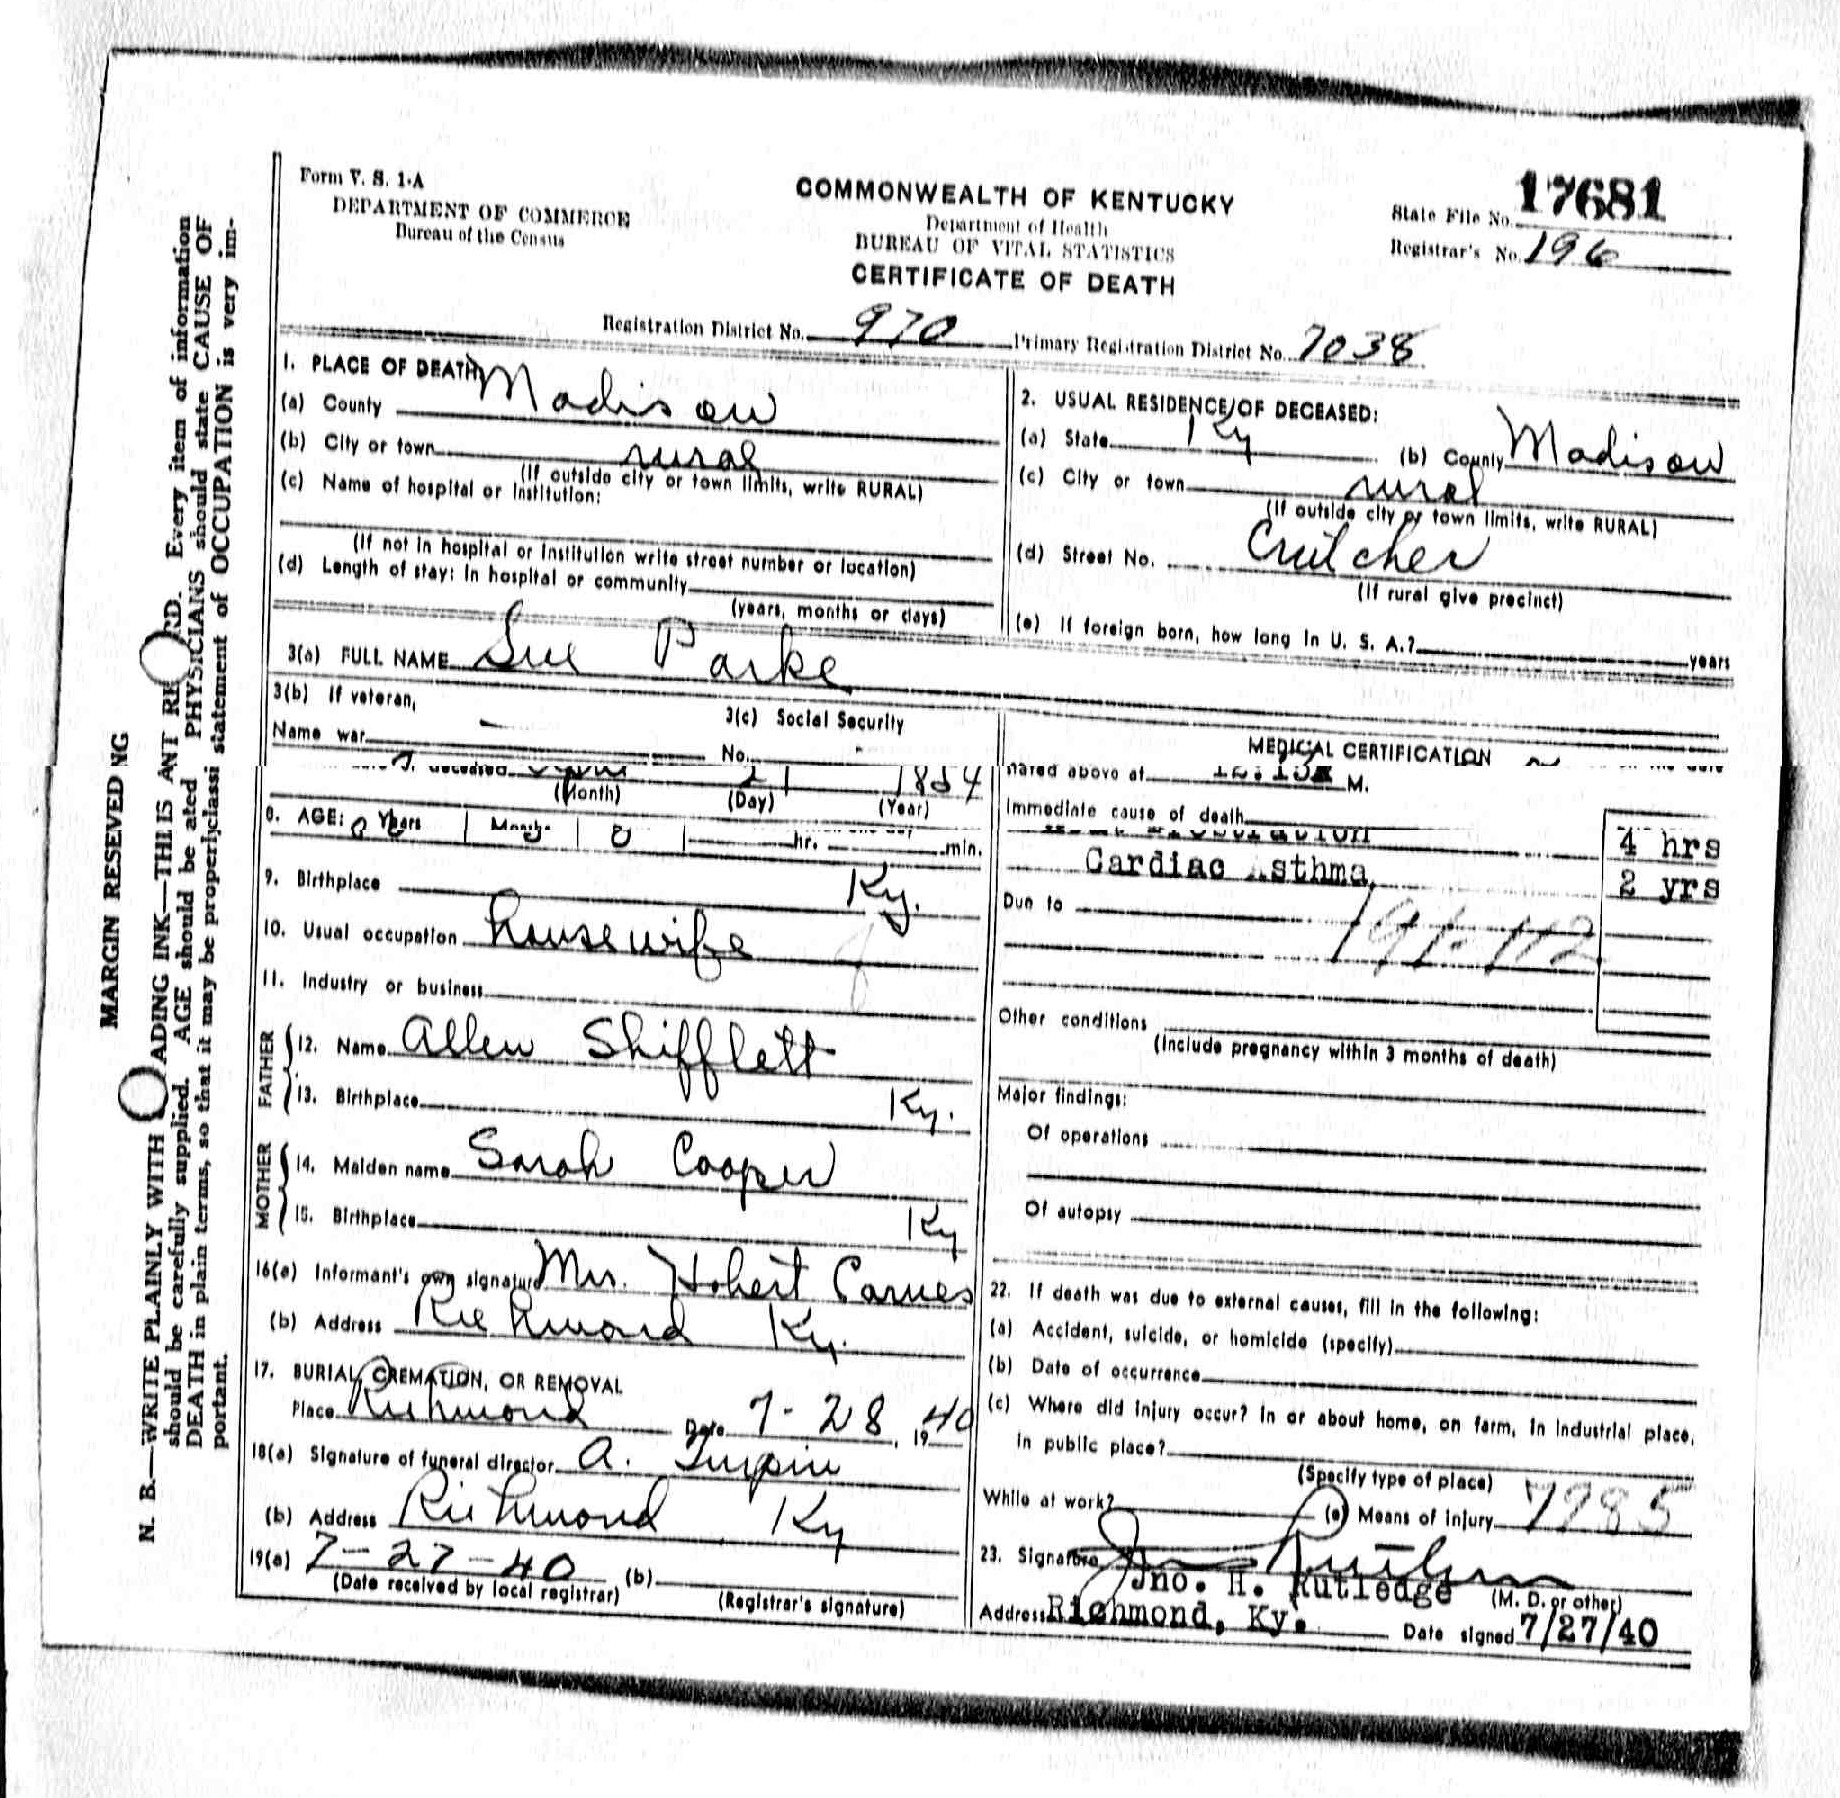 Form V. S. 1-A
DEPARTMENT OF COMMERCE
Bureau of the Census
COMMONWEALTH OF KENTUCKY
Department of Health
BUREAU OF VITAL STATISTICS
CERTIFICATE OF DEATH
State File No. 17681
Registrar's No. 196
Registration District No. 970 Primary Registration District No. 7038
1. PLACE OF DEATH
(a) County Madison
(b) City or town rural
(If outside city or town limits, write RURAL)
(c) Name of hospital or Institution:
(If not in hospital or institution write street number or location)
(d) Length of stay: In hospital or community
(years, months or days)
2. USUAL RESIDENCE OF DECEASED:
(a) State Ky (b) County Madison
(c) City or town rural
(If outside city or town limits, write RURAL)
(d) Street No. Crutcher
(If rural give precinct)
(e) If foreign born, how long in U. S. A.? years
3(a) FULL NAME Sue Parke
3(b) If veteran,
Name war
3(c) Social Security
No.
deceased 21 1854
(Month) (Day) (Year)
8. AGE: Years Months hr. min.
9. Birthplace Ky.
10. Usual occupation housewife
11. Industry or business
FATHER
12. Name Allen Shifflett
13. Birthplace Ky.
MOTHER
14. Maiden name Sarah Cooper
15. Birthplace Ky
16(a) Informant's own signature Mrs. Hobert Carnes
(b) Address Richmond Ky.
17. BURIAL, CREMATION, OR REMOVAL
Place Richmond Date 7-28, 1940
18(a) Signature of funeral director A. Turpin
(b) Address Richmond Ky
19(a) 7-27-40 (b)
(Date received by local registrar) (Registrar's signature)
MEDICAL CERTIFICATION
above at M.
Immediate cause of death
4 hrs
Cardiac Asthma 2 yrs
Due to
191-112
Other conditions
(Include pregnancy within 3 months of death)
Major findings:
Of operations
Of autopsy
22. If death was due to external causes, fill in the following:
(a) Accident, suicide, or homicide (specify)
(b) Date of occurrence
(c) Where did injury occur? In or about home, on farm, in industrial place,
in public place?
(Specify type of place)
While at work? (e) Means of injury 7985
23. Signature Jno. H. Rutledge (M. D. or other)
Address Richmond, Ky. Date signed 7/27/40
MARGIN RESEVED NG
N. B.—WRITE PLAINLY WITH ADING INK—THIS ANT RE RD. Every item of information
should be carefully supplied. AGE should be ated PHYSICIANS should state CAUSE OF
DEATH in plain terms, so that it may be properlclassi statement of OCCUPATION is very im-
portant.